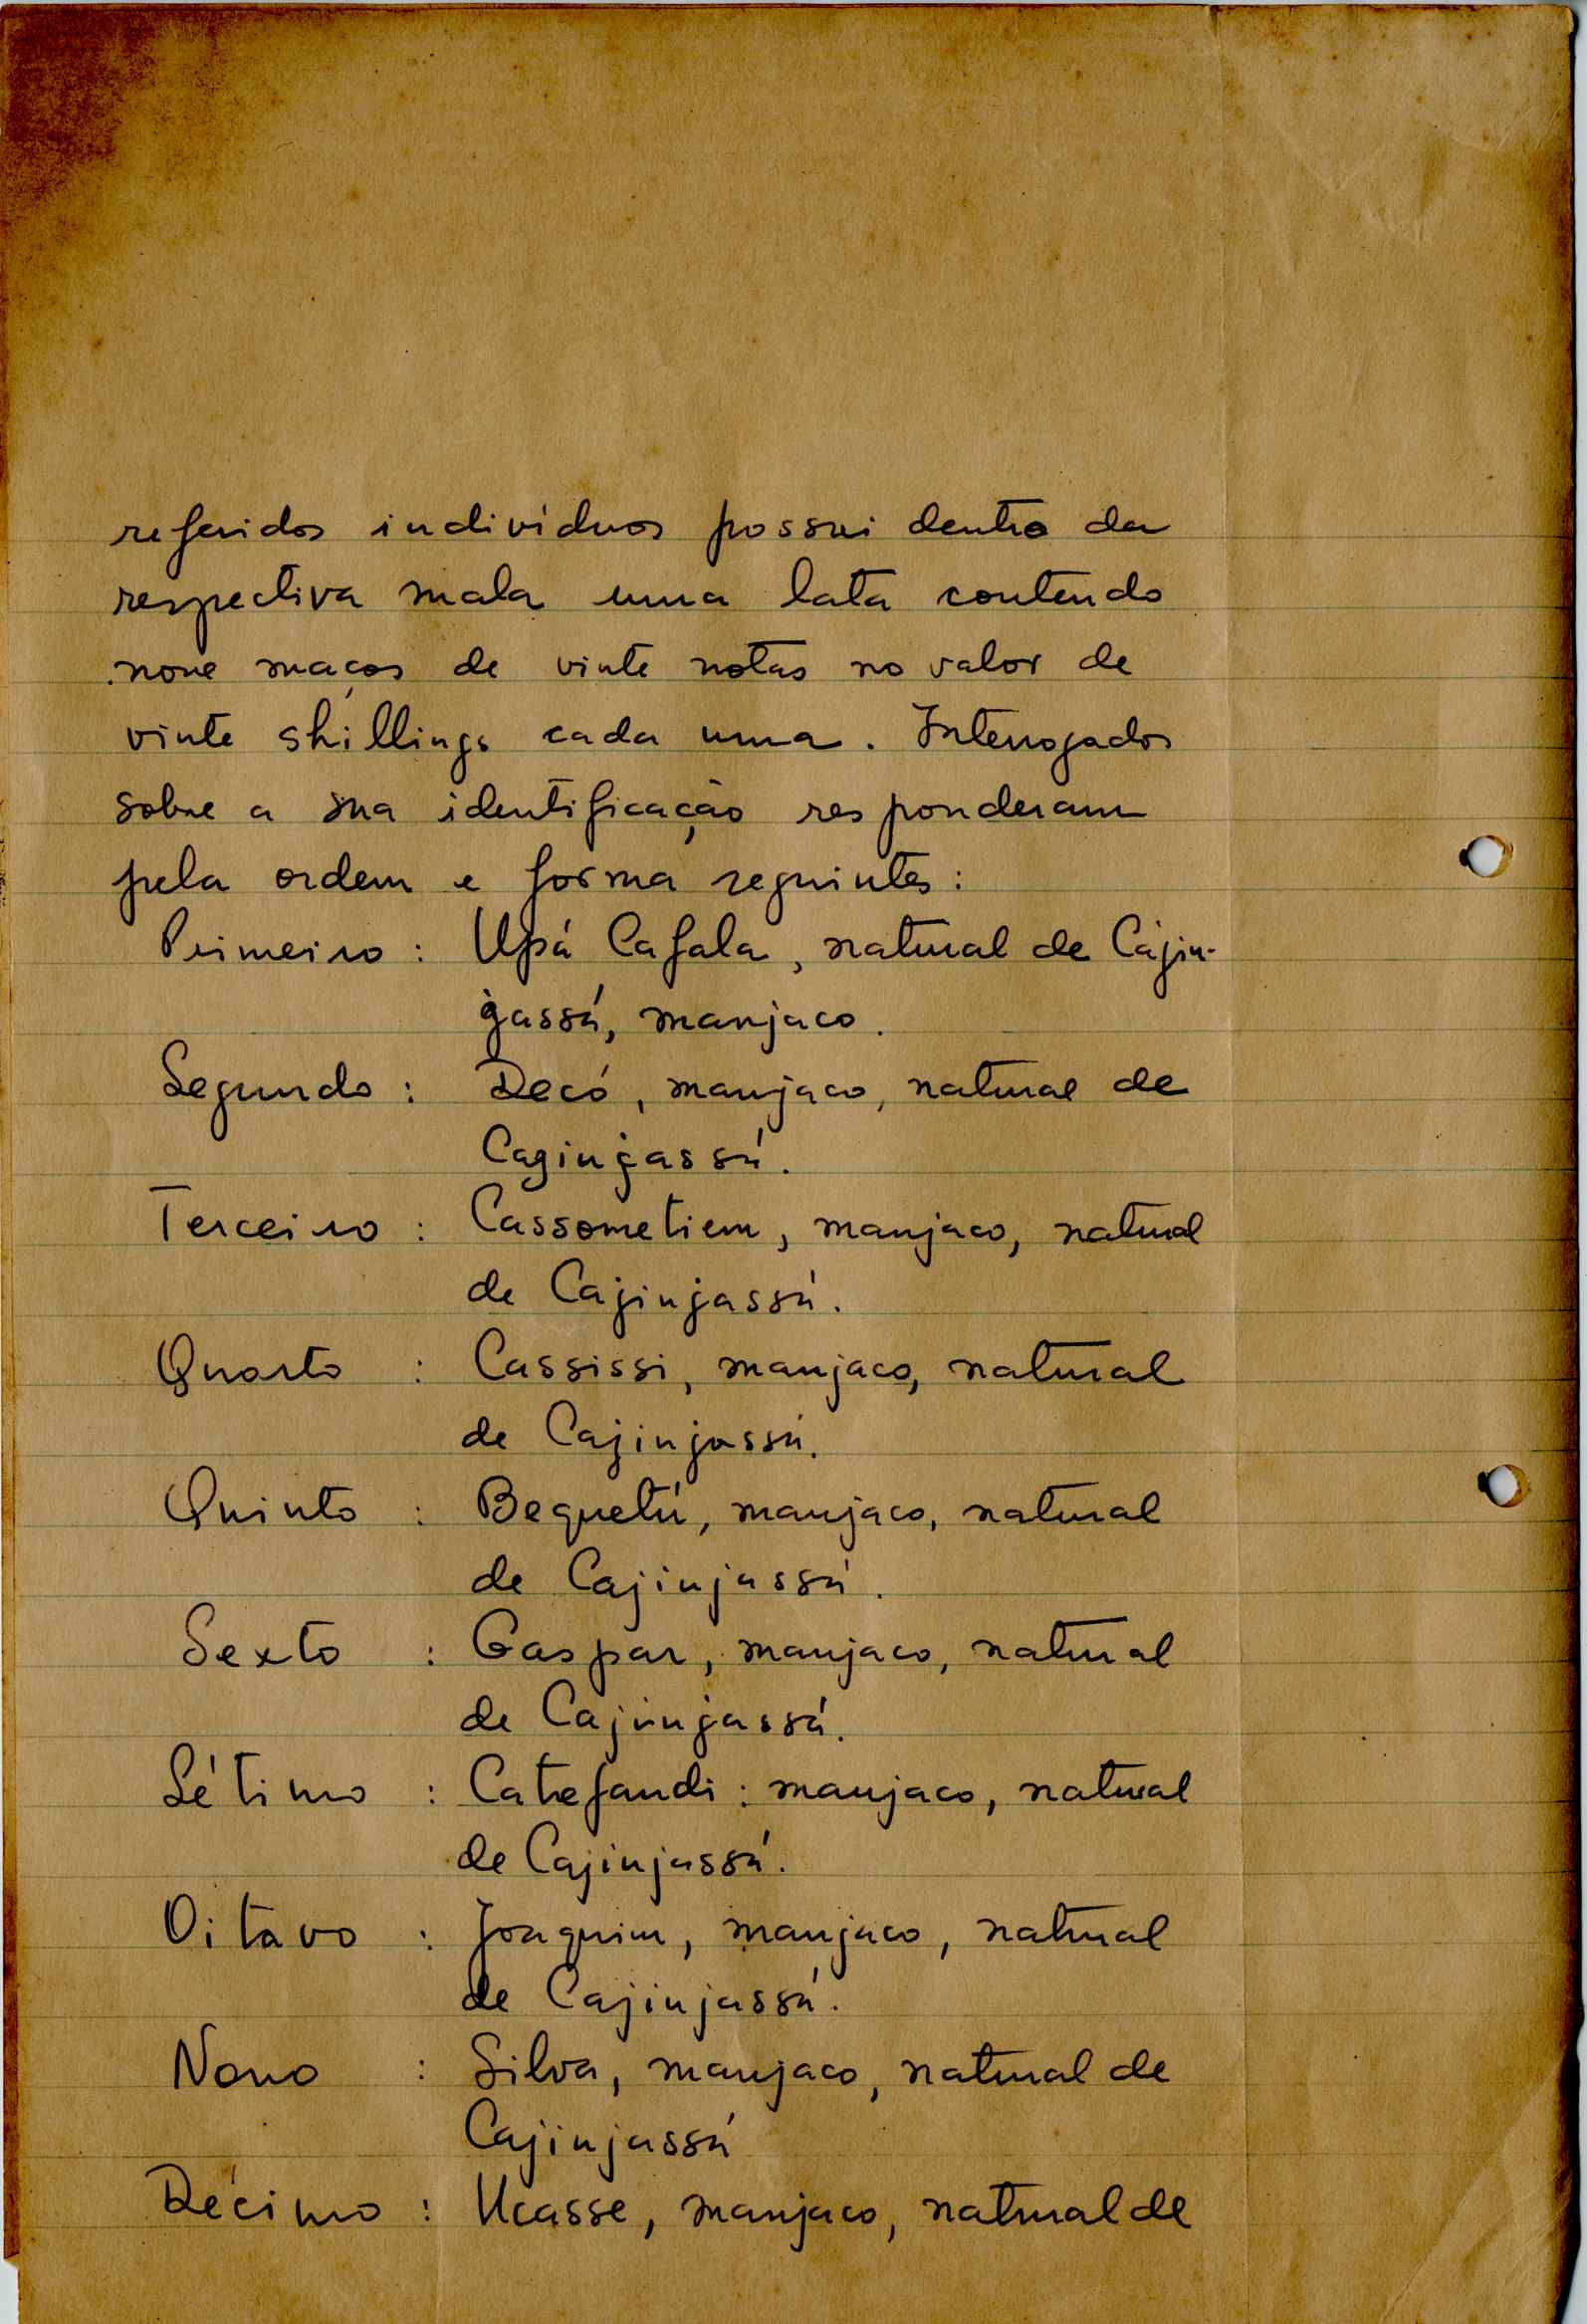 referidos indivíduos possui dentro da
respectiva mala uma lata contendo
nove maços de vinte notas no valor de
vinte shillings cada uma. Interrogados
sobre a sua identificação responderam
pela ordem e forma seguintes:
Primeiro : Upá Cafala, natural de Cajin-
gassú, manjaco.
Segundo : Decó, manjaco, natural de
Caginjassú.
Terceiro : Cassometiem, manjaco, natural
de Cajinjassú.
Quarto : Cassissi, manjaco, natural
de Cajinjassú.
Quinto : Bequetú, manjaco, natural
de Cajinjassú.
Sexto : Gaspar, manjaco, natural
de Cajinjassú.
Sétimo : Catrefandi : manjaco, natural
de Cajinjassú.
Oitavo : Joaquim, manjaco, natural
de Cajinjassú.
Nono : Silva, manjaco, natural de
Cajinjassú
Décimo : Ucasse, manjaco, natural de